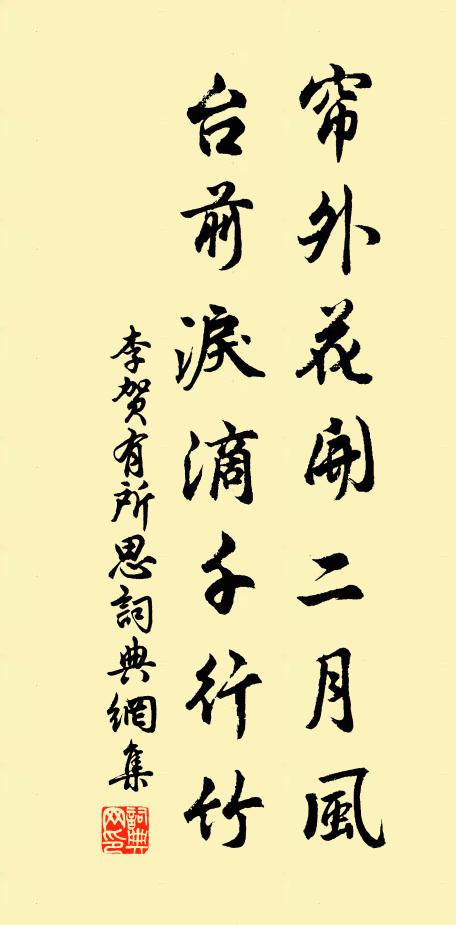 帘外花開二月風
台前淚滴千行竹
李賀有所思詞典網集
詞典网印